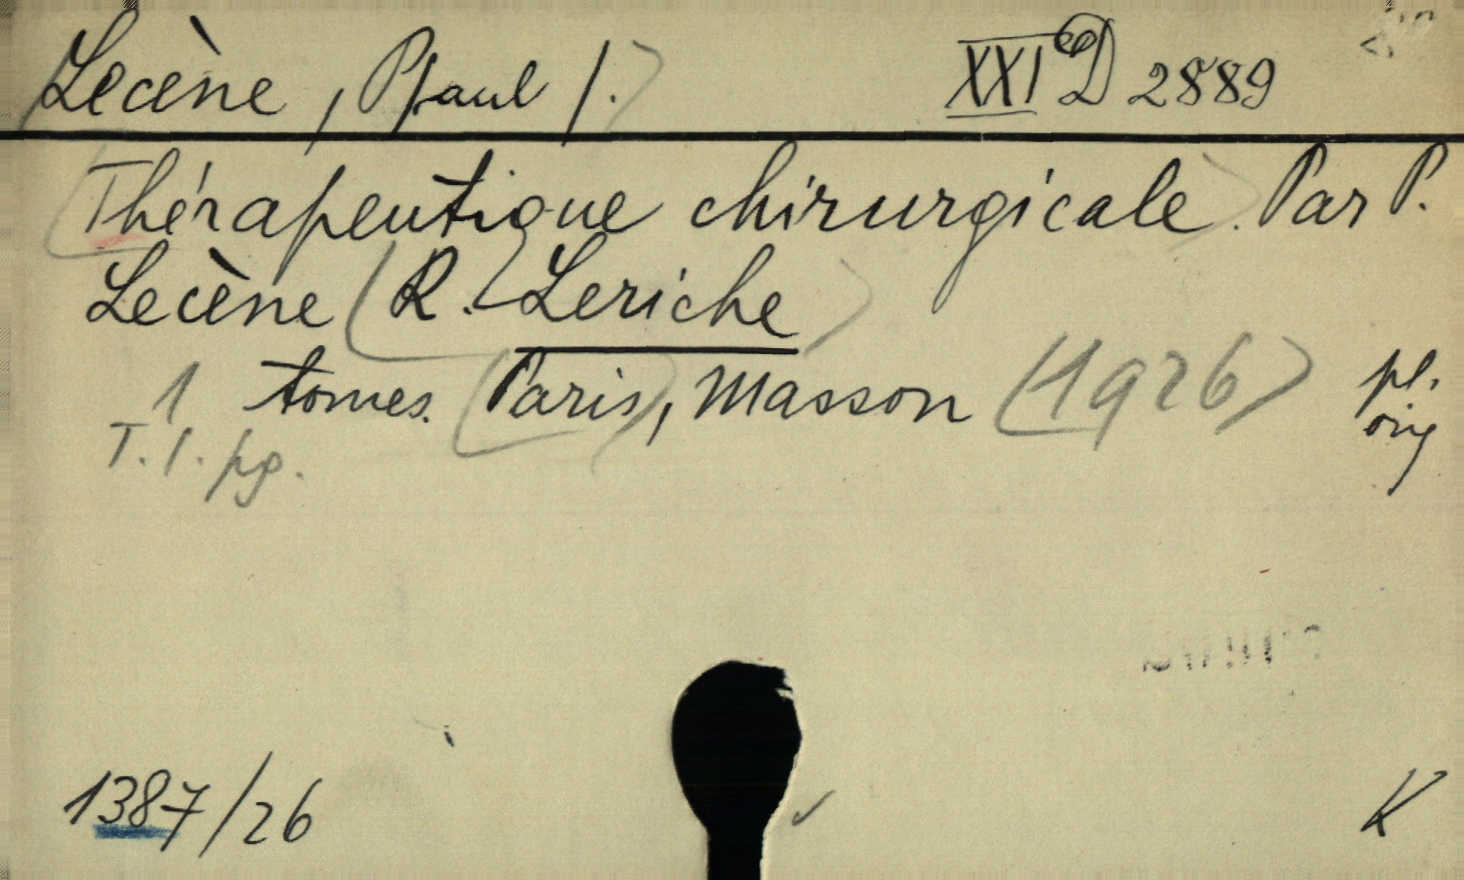 Lecène, P/aul/. XXI D 2889
Thérapeutique chirurgicale. Par P.
Lecène R. Leriche
1 tomes. Paris, Masson (1926) pl.
T. 1. pg. orig
1387/26 K